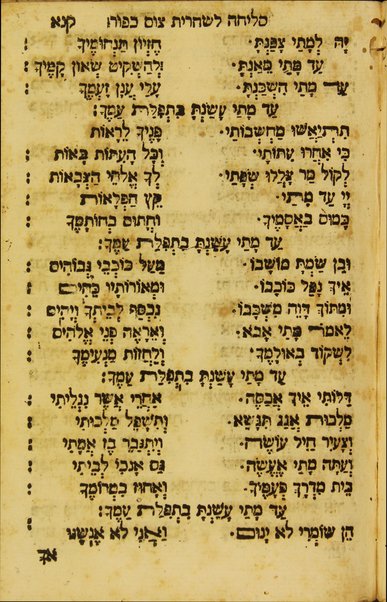 סליחה לשחרית צום כפור׃ קנא
יָהּ לְמָתַי צָפַנְתָּ · חֶזְיוֹן תַּנְחוּמֶיךָ
עַד מָתַי מֵאַנְתָּ · לְהַשְׁקִיט שְׁאוֹן קָמֶיךָ
עַד מָתַי הִשְׁכַּנְתָּ · עָלַי עֲנַן זַעְמֶּךָ
עַד מָתַי עָשַׁנְתָּ בִּתְפִלַּת עַמֶּךָ׃
תִּתְיָאַשׁ מַחְשְׁבוֹתַי · פָּנֶיךָ לִרְאוֹת
כִּי אֵחֲרוּ עִתּוֹתַי · וְכָל הָעִתּוֹת בָּאוֹת
לְקוֹל מַר צָלְלוּ שְׂפָתַי · לְךָ אֱלֹהֵי הַצְּבָאוֹת
יְיָ עַד מָתַי · קֵץ הַפְּלָאוֹת
כָּמוּס בְּאַסָמֶיךָ · וְחָתוּם בְּחוֹתָמֶךָ
עַד מָתַי עָשַׁנְתָּ בִּתְפִלַּת עַמֶּךָ׃
וּבֵן שַׂמְתָּ מוֹשָׁבוֹ · מַעַל כּוֹכְבֵי גְבוֹהִים
אֵיךְ נָפַל כּוֹכָבוֹ · וּמְאוֹרוֹתָיו כֵּהִים
וּמִתּוֹךְ דְּוֵה מִשְׁכָּבוֹ · נִכְסָף לְבֵיתְךָ וְיָהִים
לֵאמֹר מָתַי אָבֹא · וְאֵרָאֶה פְּנֵי אֱלֹהִים
לִשְׁקוֹד בְּאוּלָמֶךָ · וְלַחֲזוֹת מַנְעִימֶךָ
עַד מָתַי עָשַׁנְתָּ בִתְפִלַּת עַמֶּךָ׃
דַּלּוֹתִי אֵיךְ אֲכַסֶּה · אַחֲרֵי אֲשֶׁר נִגְלֵיתִי
מַלְכוּת אֲגַג תִּנַּשֵּׂא · וְתִשְׁפַּל מַלְכוּתִי
וְצָעִיר חַיִל עוֹשֶׂה · וְיִתְגַּבֵּר בֶּן אֲמָתִי
וְעַתָּה מָתַי אֶעֱשֶׂה · גַּם אָנֹכִי לְבֵיתִי
בֵּית מִדְרַךְ פְּעָמֶיךָ · וְאָחוּז בִּמְרוֹמֶךָ
עַד מָתַי עָשַׁנְתָּ בִּתְפִלַּת עַמֶּךָ׃
הֵן שׁוֹמְרִי לֹא יָנוּם · וַאֲנִי לֹא אֱנָשׁ
אך